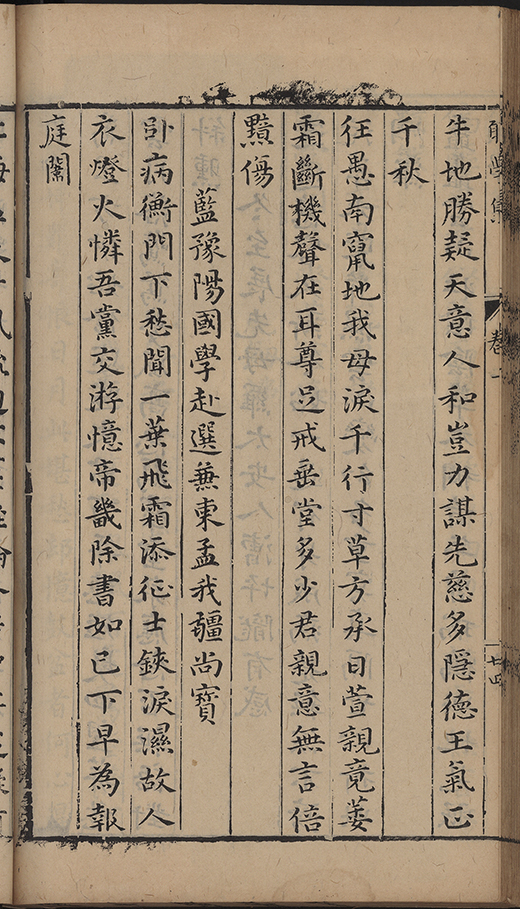 牛地勝疑天意人和豈力謀先慈多隱德王氣正
千秋
徃愚南窜地我母淚千行寸草方承日萱親竟萎
霜斷機聲在耳尊足戒垂堂多少君親意無言倍
黯傷
藍豫陽國學赴選兼柬孟我疆尚寶
卧病衡門下愁聞一葉飛霜添征士鋏淚濕故人
衣燈火憐吾黨交游憶帝畿除書如已下早為報
庭闈
卷一
七四